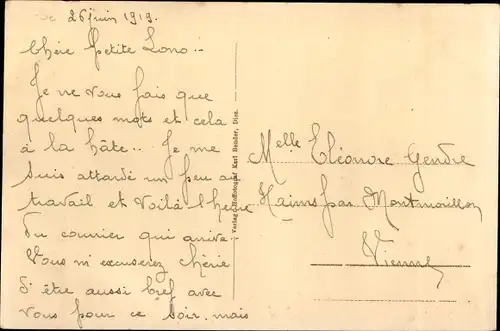 Ce 26 juin 1919.
Chère Petite Lono..
Je ne vous fais que
quelques mots et cela
à la hâte.. Je me
suis attardé un peu au
travail et voilà l'heure
du courrier qui arrive.
Vous m'excuserez chérie
d'être aussi bref avec
vous pour ce soir. mais
Verlag: Photograf Karl Bender, Diez.
Melle Eléonore Gendre
Haims par Montmorillon
Vienne